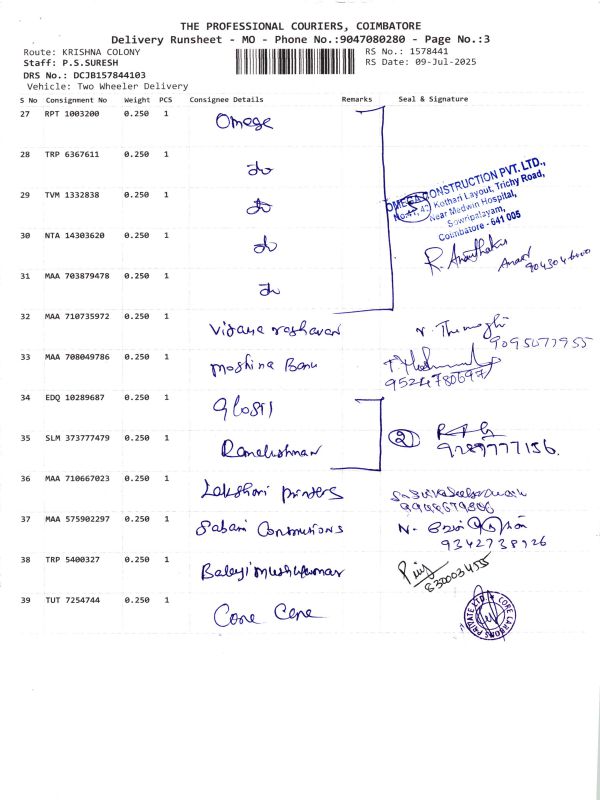 THE PROFESSIONAL COURIERS, COIMBATORE
Delivery Runsheet - MO - Phone No.:9047080280 - Page No.:3
Route: KRISHNA COLONY RS No.: 1578441
Staff: P.S.SURESH RS Date: 09-Jul-2025
DRS No.: DCJB157844103
Vehicle: Two Wheeler Delivery
S No Consignment No Weight PCS Consignee Details Remarks Seal & Signature
27 RPT 1003200 0.250 1 Omega
28 TRP 6367611 0.250 1 do
29 TVM 1332838 0.250 1 do
OMEGA CONSTRUCTION PVT. LTD.,
No:41, 42 Kothari Layout, Trichy Road,
Near Medwin Hospital,
Sowripalayam,
Coimbatore - 641 005
5
30 NTA 14303620 0.250 1 do
31 MAA 703879478 0.250 1 do
32 MAA 710735972 0.250 1 Vijaya raghavan
9095677955
33 MAA 708049786 0.250 1 Moshina Banu
9524780697
34 EDQ 10289687 0.250 1
35 SLM 373777479 0.250 1 Ramakrishnan 2
9289777156
36 MAA 710667023 0.250 1 Lakshmi printers
37 MAA 575902297 0.250 1 Sabari Constructions
9342738926
38 TRP 5400327 0.250 1 Balaji
8300034555
39 TUT 7254744 0.250 1 Core
CORE CARBONS PRIVATE LTD.